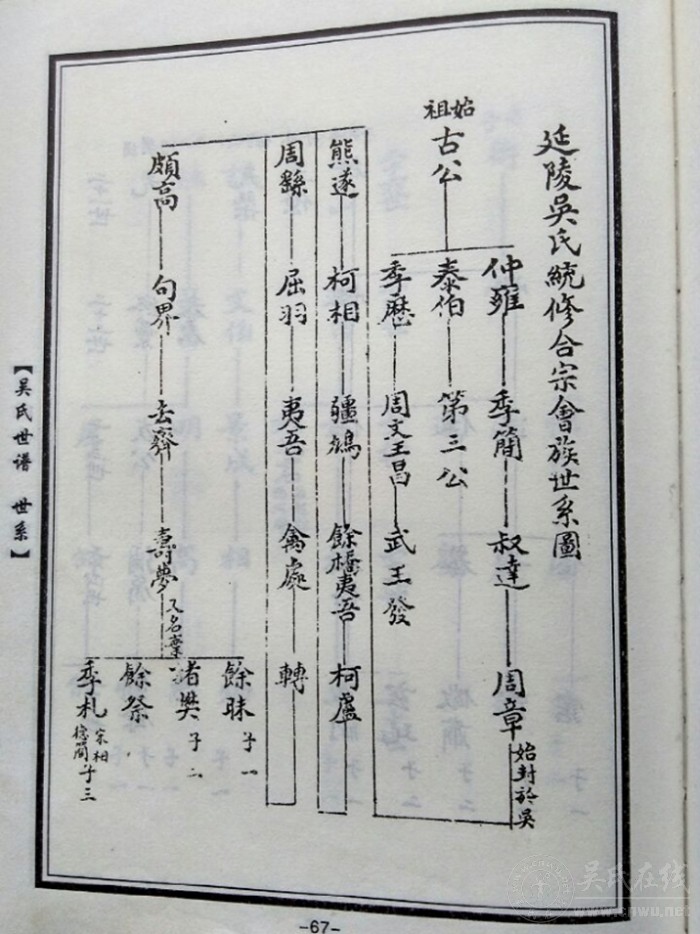 延陵吳氏統修合宗會族世系圖
始祖
古公
仲雍 季簡 叔達 周章 始封於吳
泰伯 第三公
季歷 周文王昌 武王發
熊遂 柯相 彊鳩 餘橋夷吾 柯盧
周繇 屈羽 夷吾 禽處 轉
頗高 句畀 去齊 壽夢 又名乘
餘昧 子一
諸樊 子二
餘祭
季札 子三
【吴氏世谱 世系】
-67-
吴氏在线
www.cnwu.net